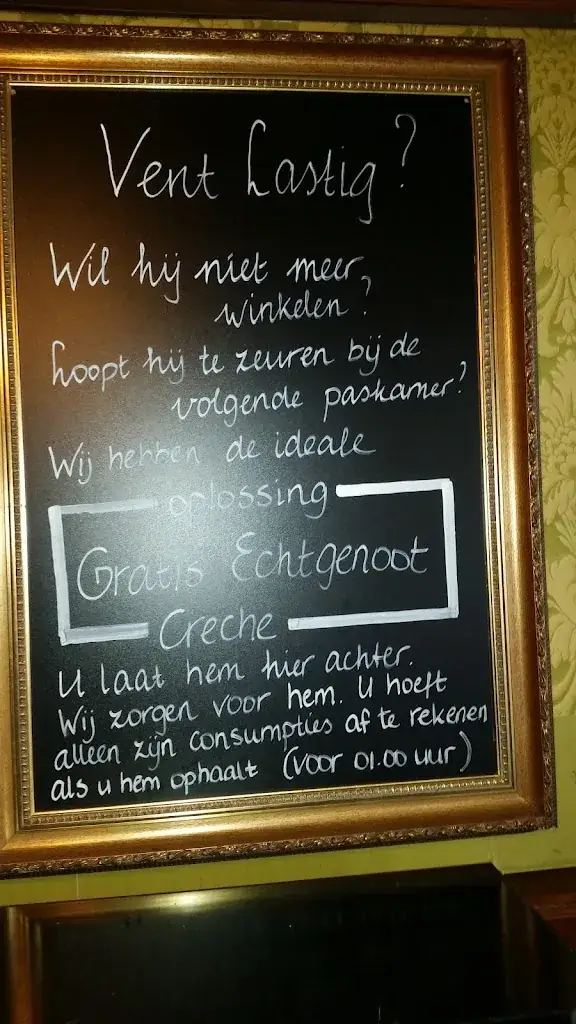 Vent Lastig?
Wil hij niet meer
winkelen?
Loopt hij te zeuren bij de
volgende paskamer?
Wij hebben de ideale
oplossing
Gratis Echtgenoot
Creche
U laat hem hier achter.
Wij zorgen voor hem. U hoeft
alleen zijn consumpties af te rekenen
als u hem ophaalt (voor 01.00 uur)